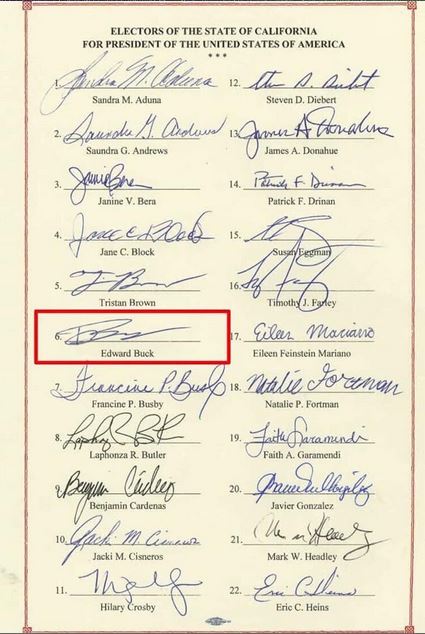 ELECTORS OF THE STATE OF CALIFORNIA
FOR PRESIDENT OF THE UNITED STATES OF AMERICA
* * *
1. Sandra M. Aduna
Sandra M. Aduna
2. Saundra G. Andrews
Saundra G. Andrews
3. Janine Bera
Janine V. Bera
4. Jane C Block
Jane C. Block
5. T Brown
Tristan Brown
6.
Edward Buck
7. Francine P. Busby
Francine P. Busby
8. Laphonza R. B
Laphonza R. Butler
9. Benjamin Cardenas
Benjamin Cardenas
10. Jacki M. Cisneros
Jacki M. Cisneros
11.
Hilary Crosby
12. Steven D. Diebert
Steven D. Diebert
13. James A Donahue
James A. Donahue
14. Patrick F. Drinan
Patrick F. Drinan
15.
Susan Eggman
16.
Timothy J. Farley
17. Eileen Mariano
Eileen Feinstein Mariano
18. Natalie Fortman
Natalie P. Fortman
19. Faith Garamendi
Faith A. Garamendi
20.
Javier Gonzalez
21. Headley
Mark W. Headley
22. Eric C. Heins
Eric C. Heins